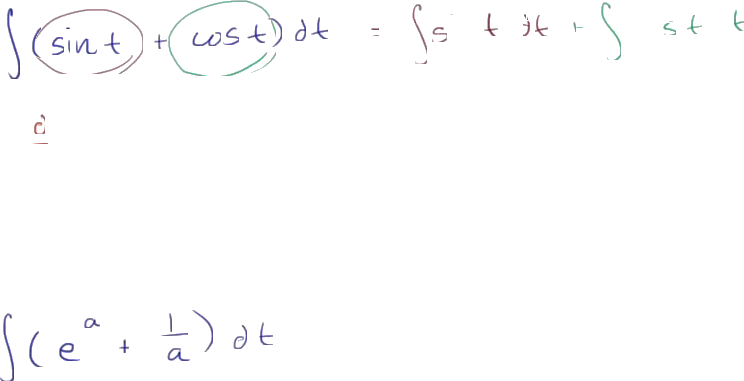 ∫(sin t + cos t) dt = ∫ s t dt + ∫ st t
d
∫(e^a + 1/a) dt